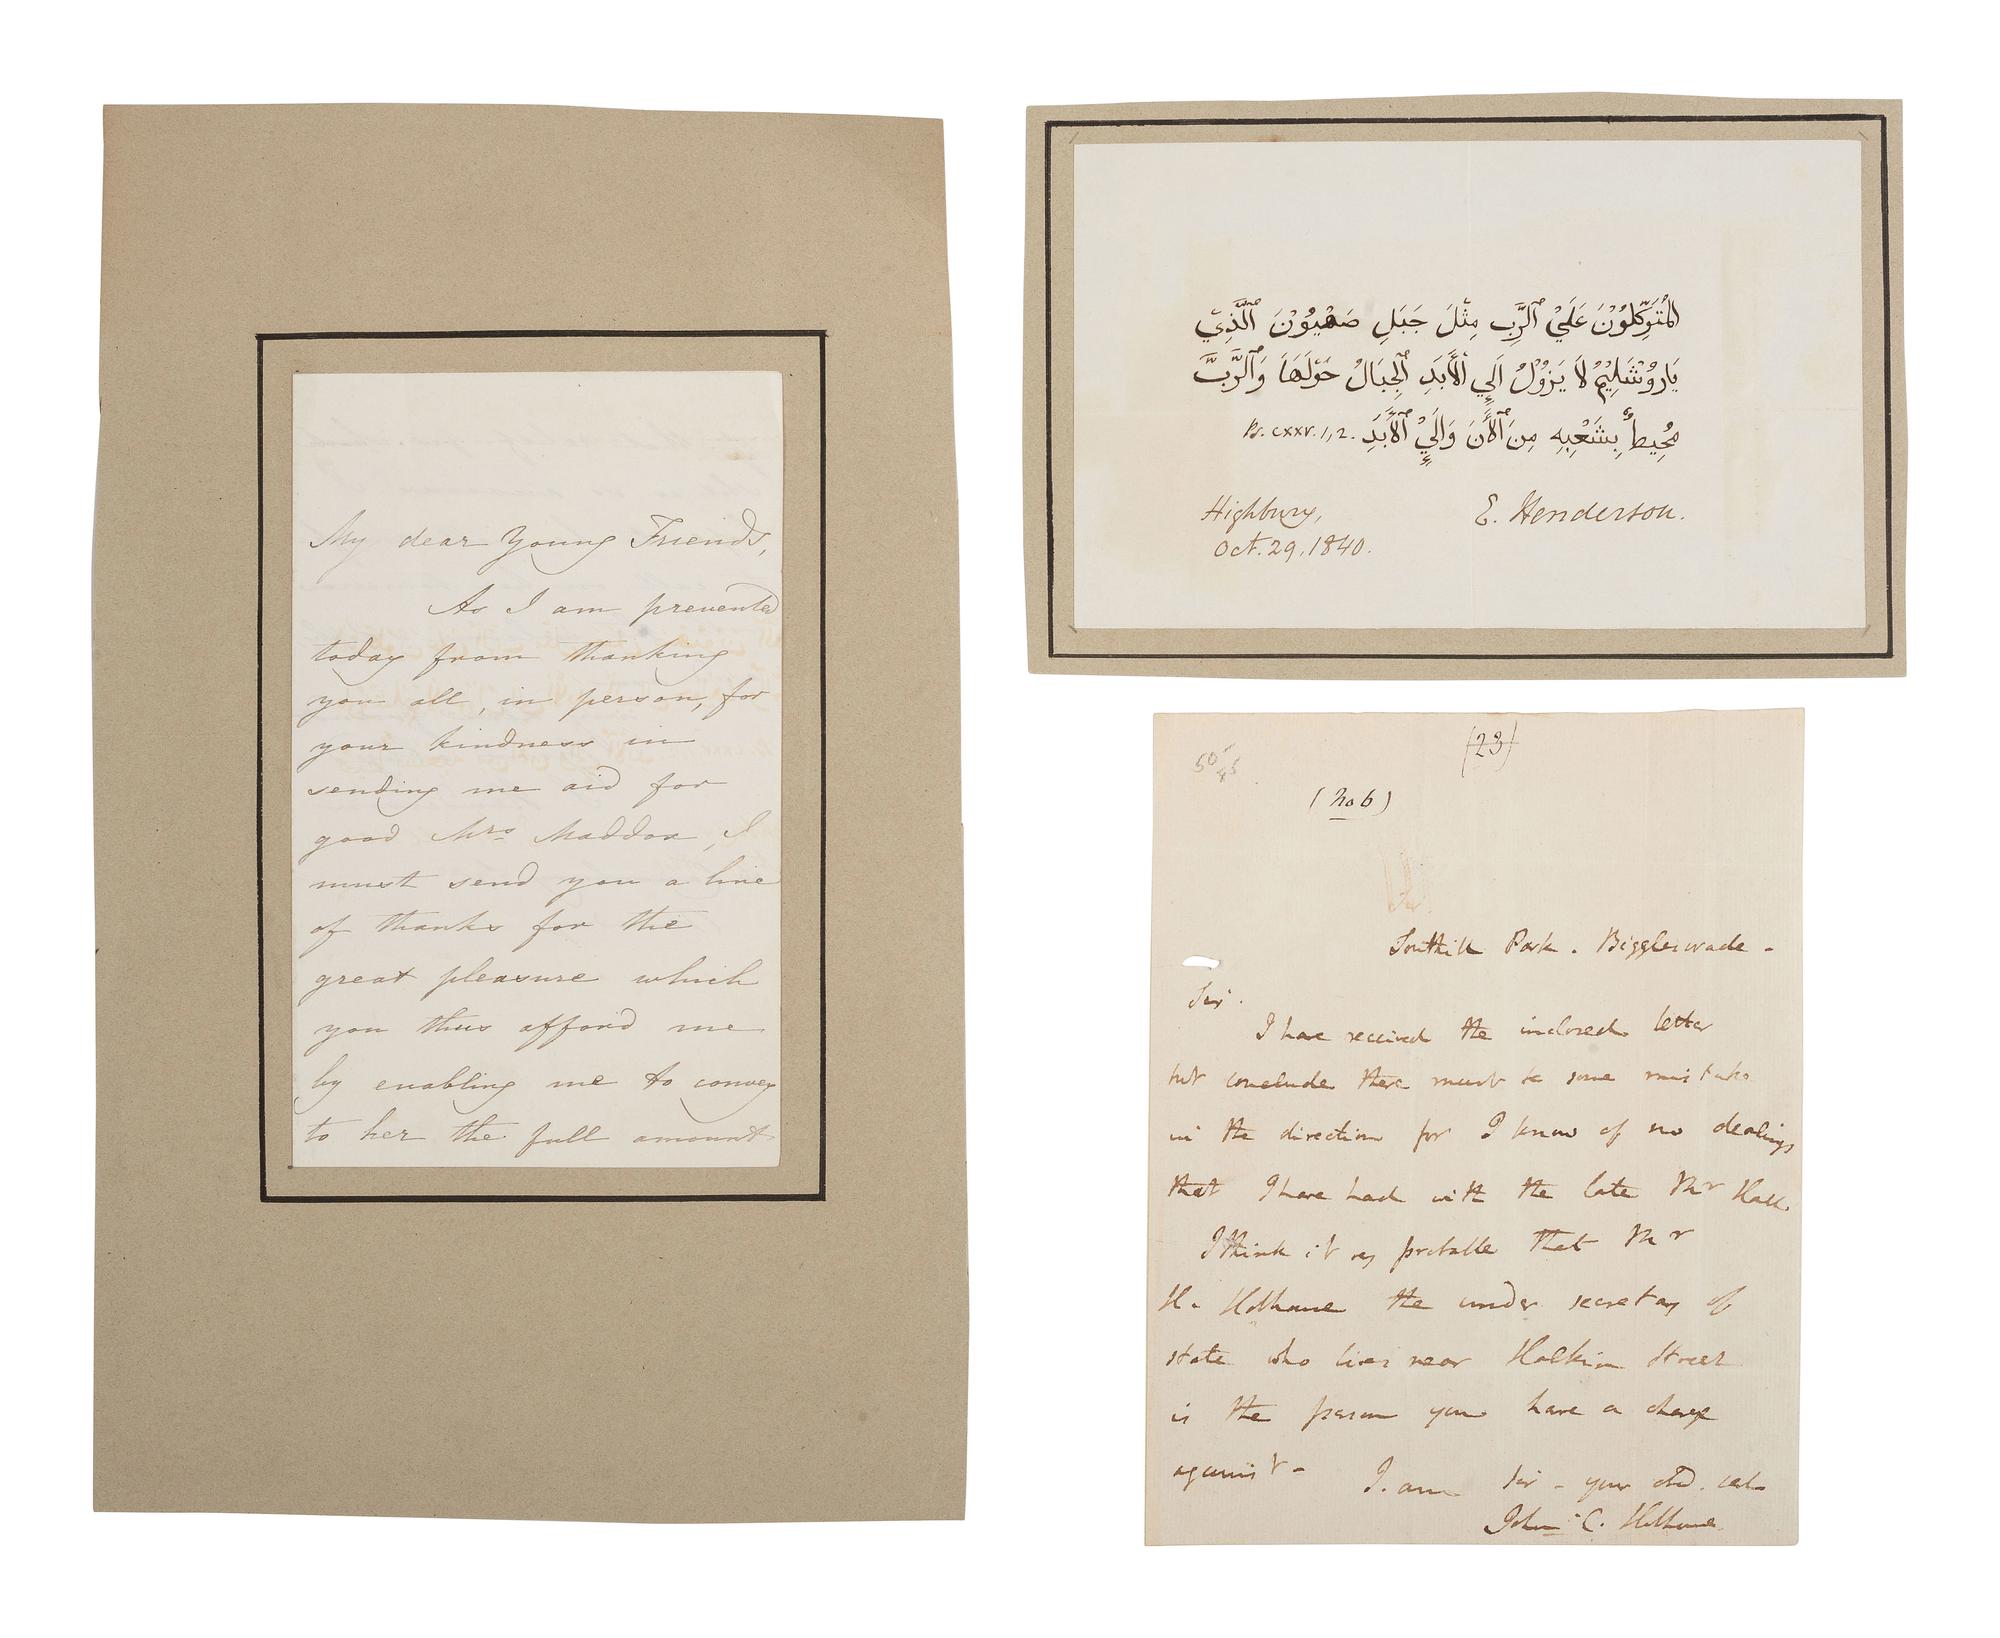 My dear Young Friends,
As I am prevented
today from thanking
you all, in person, for
your kindness in
sending me aid for
good Mrs Maddox, I
must send you a line
of thanks for the
great pleasure which
you thus afford me
by enabling me to convey
to her the full amount
المُتَوَكِّلُوْنَ عَلَيْ ٱلرَّبِ مِثْلَ جَبَلِ صَهْيُوْنَ ٱلَّذِيْ
يَارُوْشَلِيْمُ لَا يَزُوْلُ اِلَي ٱلْأَبَدِ ٱلْجِبَالُ حَوْلَهَا وَٱلرَّبُّ
مُحِيطٌ بِشَعْبِهِ مِنَ ٱلْأَنَ وَاِلَيْ ٱلْأَبَدِ Ps. cxxv. 1, 2.
Highbury, E. Henderson.
Oct. 29, 1840.
(23)
50
(No 6)
Southill Park. Biggleswade -
Sir.
I have received the inclosed letter
but conclude there must be some mistake
in the direction for I know of no dealings
that I have had with the late Mr Hall.
I think it is probable that Mr
H. Hobhouse the under secretary of
state who lives near Halkin Street
is the person you have a charge
against - I am Sir - your
John C. Hobhouse